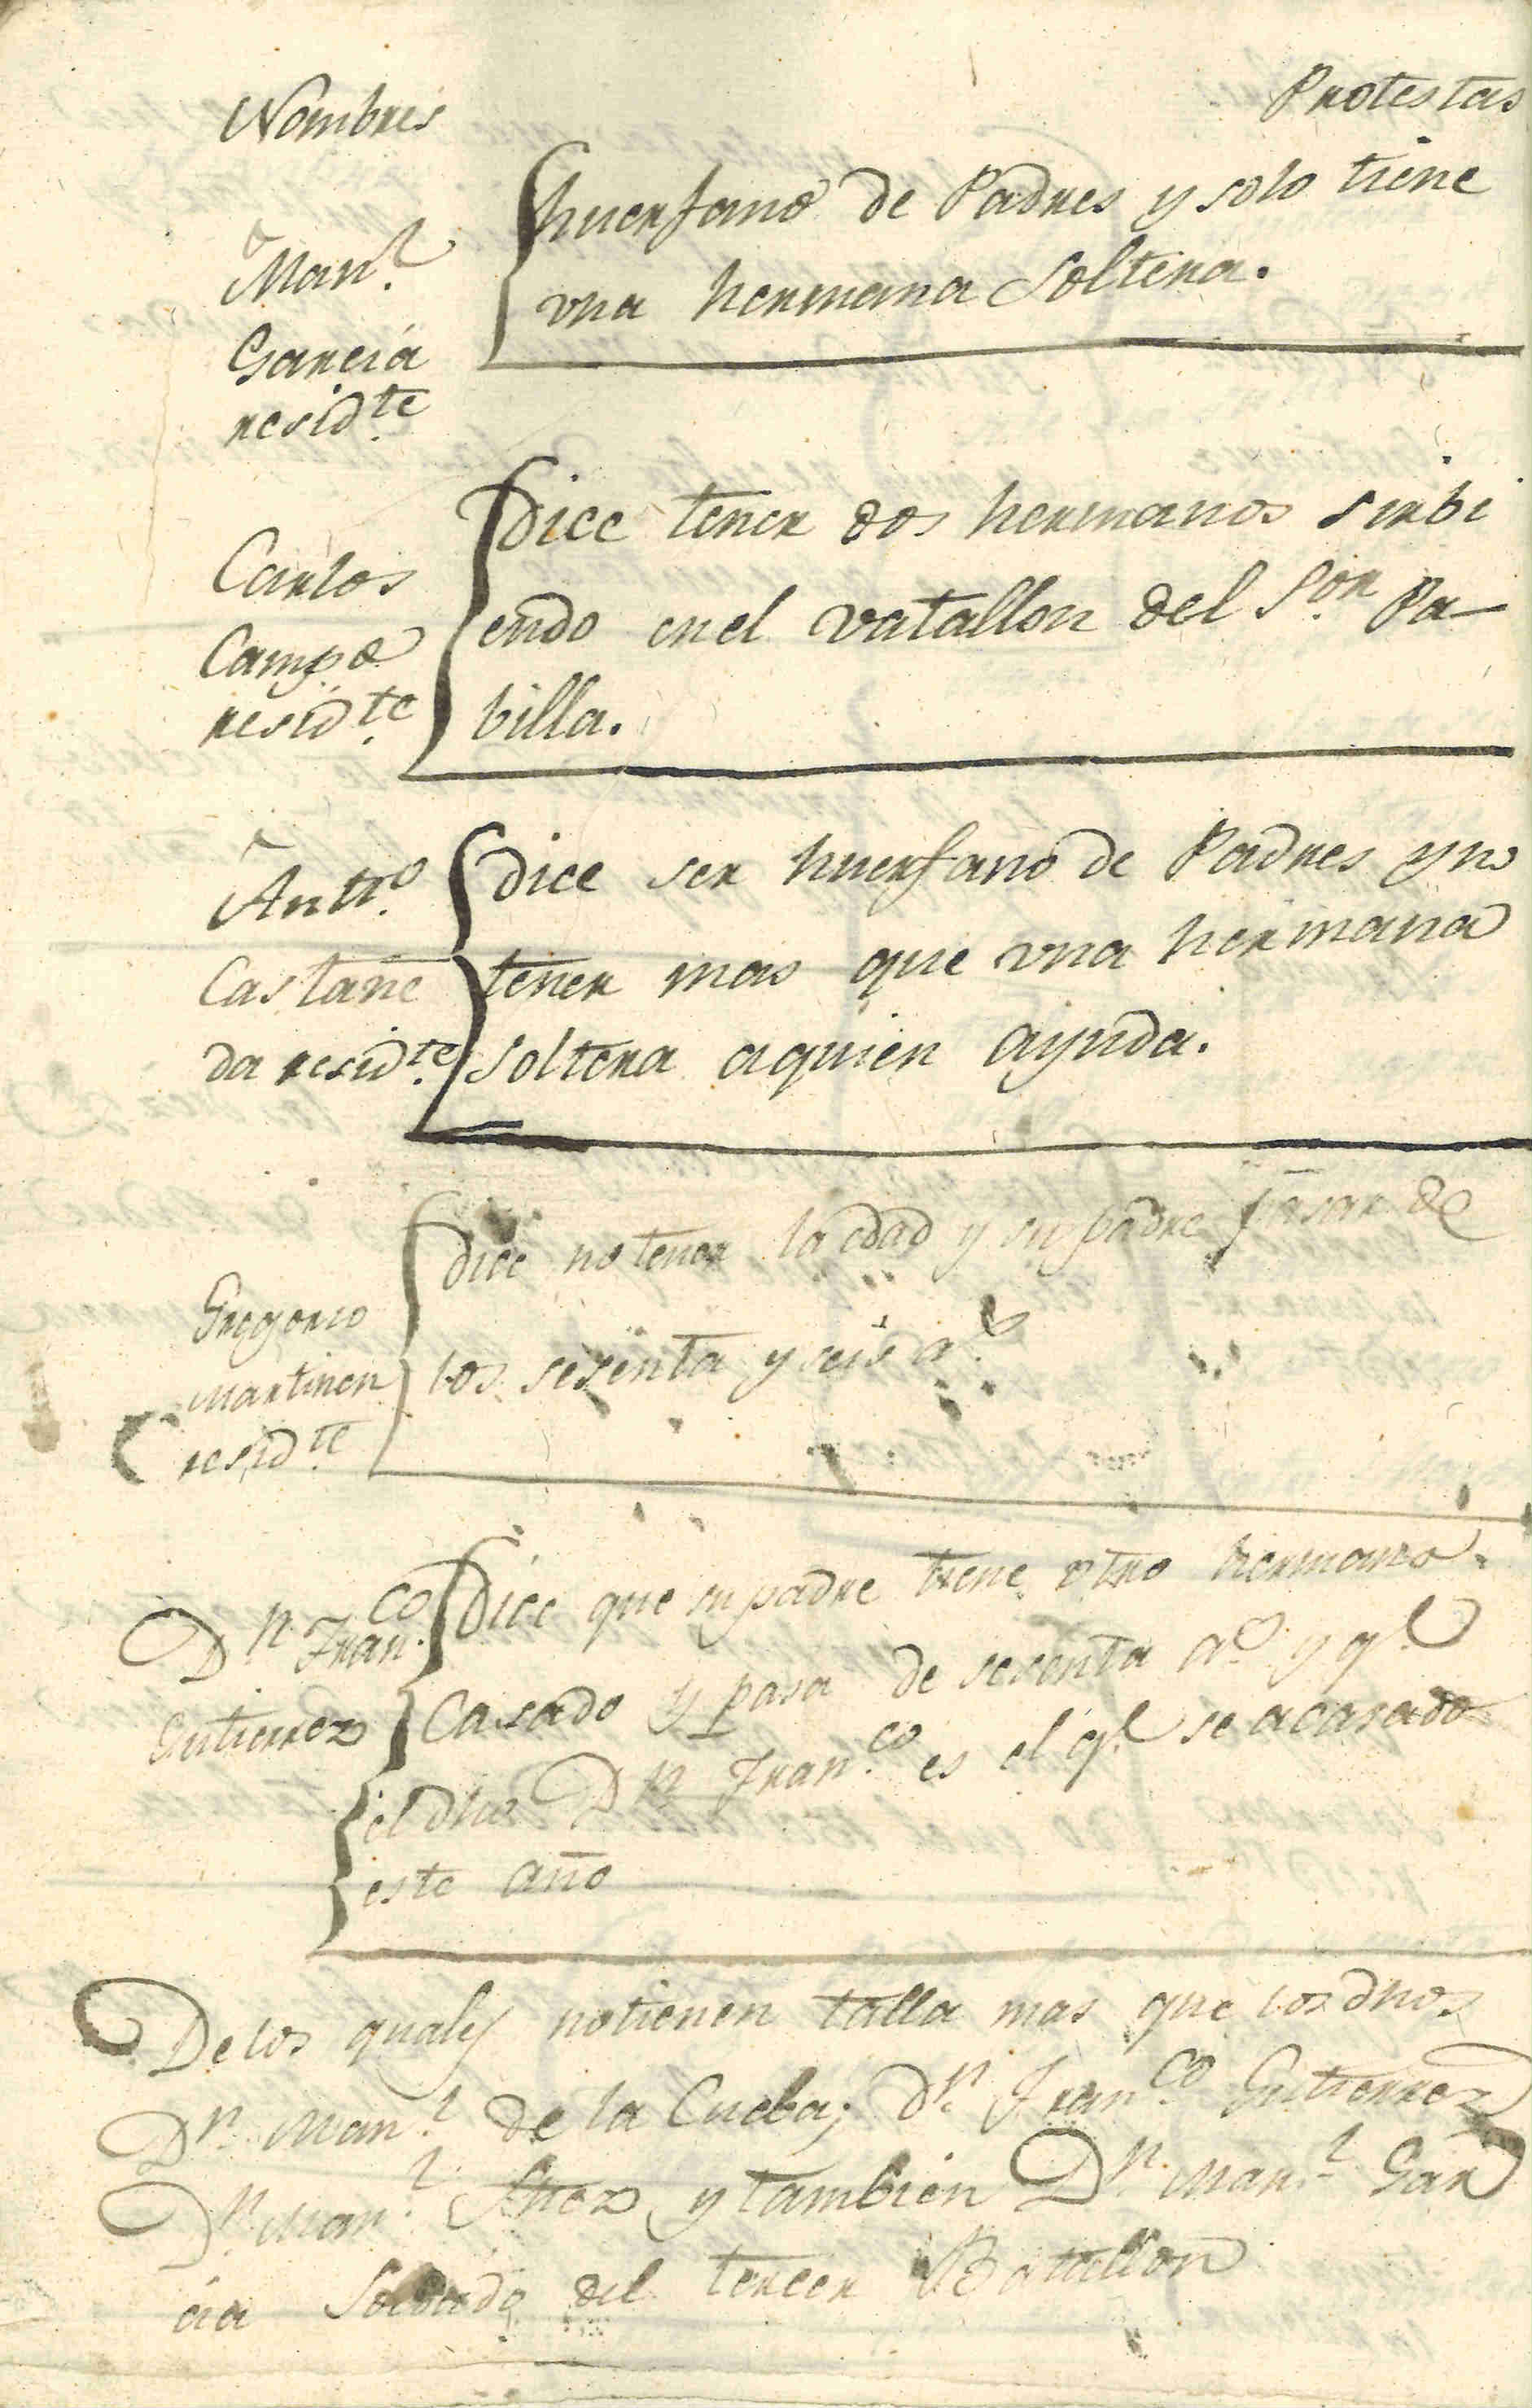 Nombres
Protestas
Man.l
Garcia
resid.te
huerfano de Padres y solo tiene
vna hermana Soltera.
Carlos
Campo
resid.te
dice tener dos hermanos sirbi
endo en el vatallon del S.or Pa-
billa.
Antt.o
Castañe
da resid.te
dice ser huerfano de Padres y no
tener mas que vna hermana
Soltera aquien ayuda.
Gregorio
Martinez
resid.te
dice no tener la edad y su padre pasar de
los sesenta y seis a.s
D.n Fran.co
Gutierrez
Dice que su padre tiene otro hermano
Casado y pasa de sesenta a.s y q.e
el dho D.n Fran.co es el q.e se acasado
este año
De los quales no tienen talla mas que los dhos
D.n Man.l de la Cueba; d.n Fran.co Gutierrez
D.n Man.l y tambien D.n Man.l Gar
cia Soldado del tercer Batallon